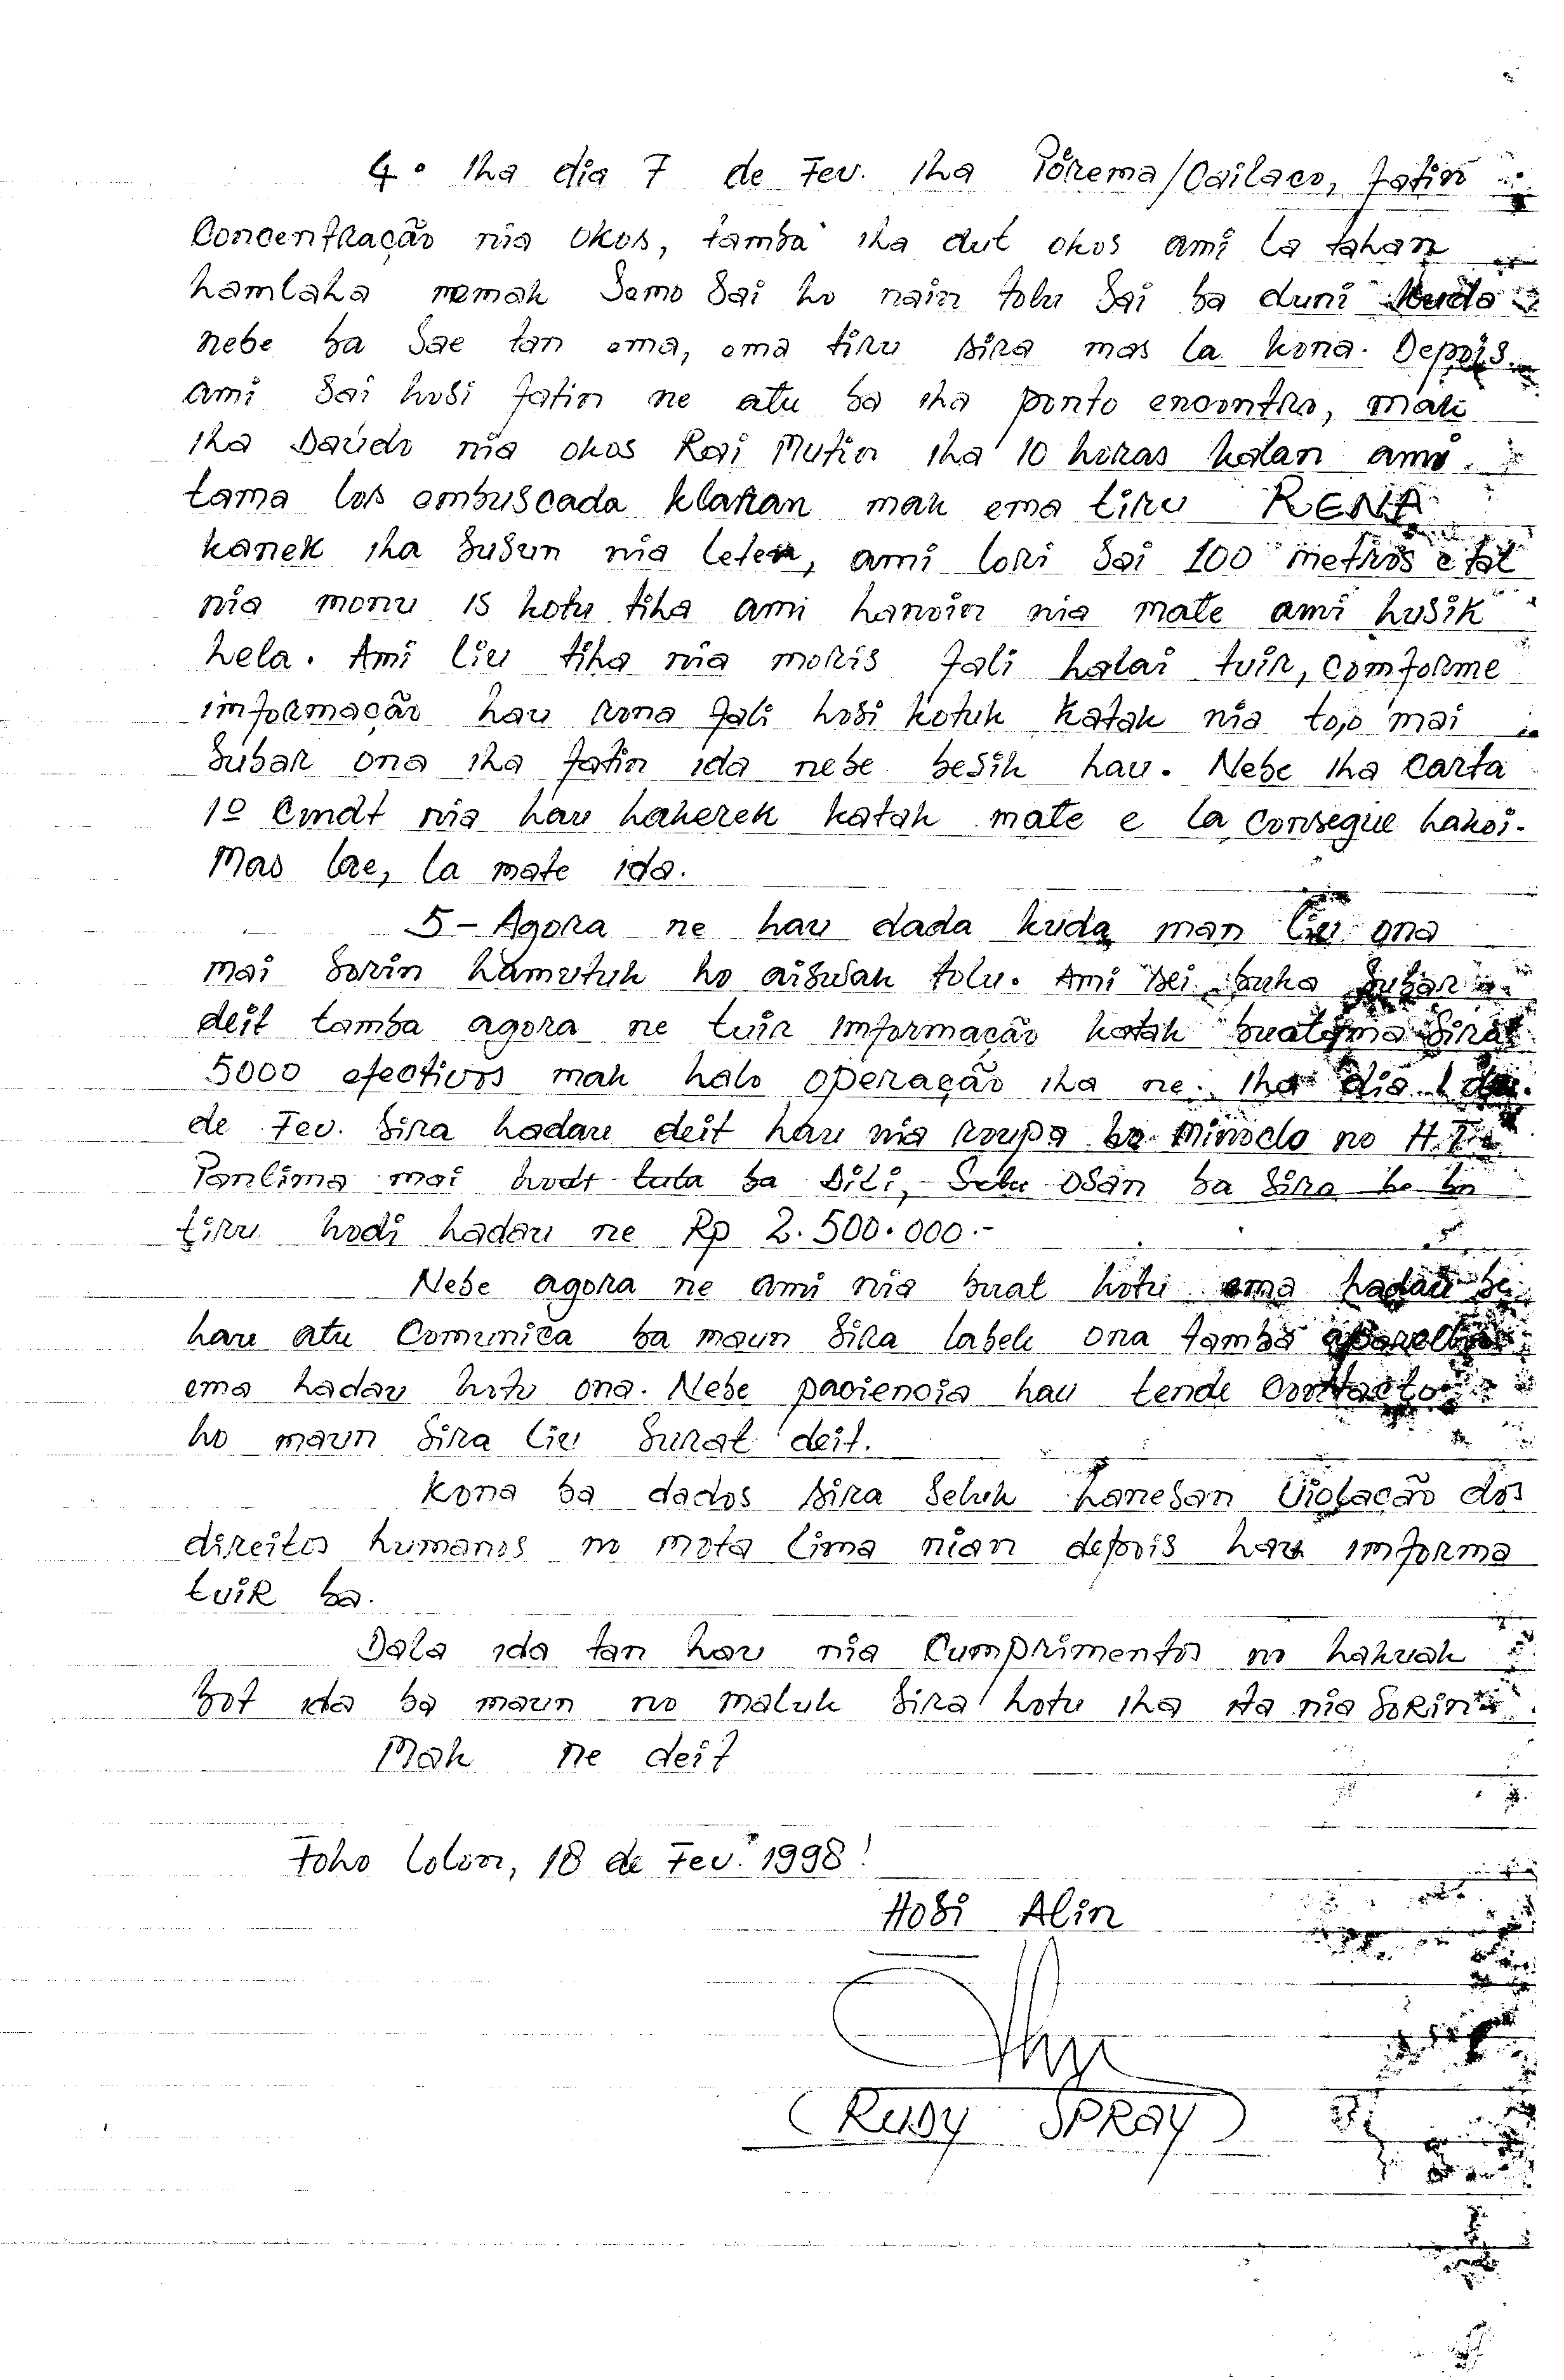 4. Iha dia 7 de Fev. iha Pôrema/Cailaco, fatin
Concentração nia okos, tamba iha dut okos ami la tahan
hamlaha memak Semo Sai ho nain tolu Sai ba duni kuda
nebe ba Sae tan ema, ema tiru sira mas la kona. Depois
ami Sai hosi fatin ne atu ba iha ponto encontro, mak
iha Daúdo nia okos Rai Mutin iha 10 horas kalan ami
tama los embuscada klaran mak ema tiru RENA
kanek iha Susun nia leten, ami lori Sai 100 metros e tal
nia monu is kotu tiha ami hanoin nia mate ami husik
hela. Ami liu tiha nia moris fali halai tuir, comforme
imformação hau rona fali hosi kotuk katak nia to,o mai
Subar ona iha fatin ida nebe besik hau. Nebe iha Carta
1º Cmdt nia hau hakerek katak mate e la consegue hakoi.
Mas lae, la mate ida.
5- Agora ne hau dada kuda man liu ona
mai Sorin hamutuk ho aiswak tolu. Ami sei buka Subar
deit tamba agora ne tuir imformação katak Sira
5000 efectivos mak halo operação iha ne. Iha dia
de Fev. Sira hadau deit hau nia roupa ba Minodo no H.T.
Panlima mai hodi tula ba Dili, Selu OSan ba Sira
tiru hodi hadau ne Rp 2.500.000.-
Nebe agora ne ami nia buat hotu ema hadau be
hau atu Comunica ba maun Sira labele ona tamba aparelho
ema hadau hotu ona. Nebe paciencia hau tende Contacto
ho maun Sira liu Surat deit.
Kona ba dados sira Seluk hanesan Violação dos
direitos humanos no mota lima nian depois hau imforma
tuiR ba.
Dala ida tan hau nia Cumprimentos no hakuak
bot ida ba maun no maluk Sira hotu iha ita nia SoRin
Mak ne deit
Foho lolon, 18 de Fev. 1998!
HoSi Alin
(RUDY SPRAY)